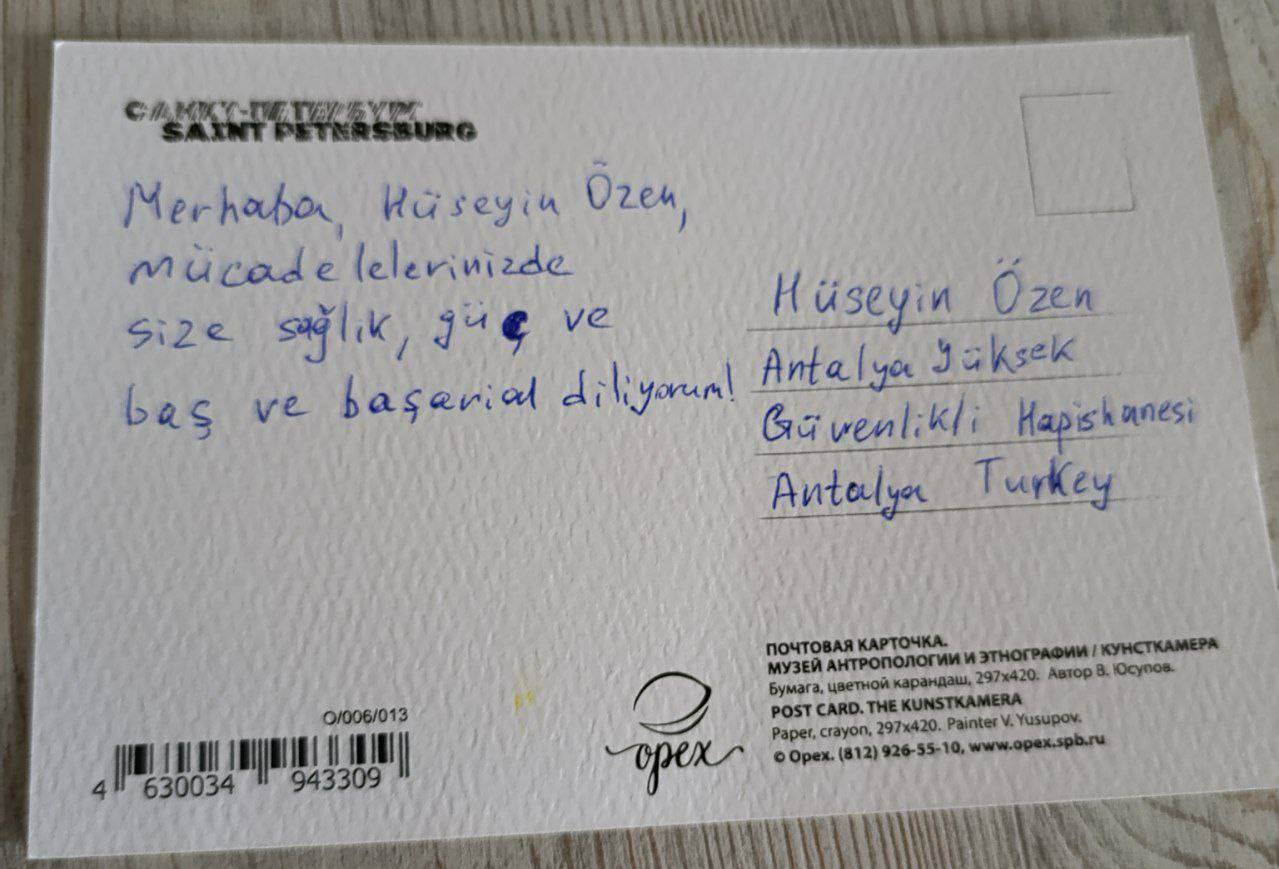 САНКТ-ПЕТЕРБУРГ
SAINT PETERSBURG
Merhaba, Hüseyin Özen,
mücadelelerinizde
size sağlik, güç ve
baş ve başarial diliyorum!
Hüseyin Özen
Antalya yüksek
Güvenlikli Hapishanesi
Antalya Turkey
O/006/013
4 630034 943309
opex
ПОЧТОВАЯ КАРТОЧКА.
МУЗЕЙ АНТРОПОЛОГИИ И ЭТНОГРАФИИ / КУНСТКАМЕРА
Бумага, цветной карандаш, 297х420. Автор В. Юсупов.
POST CARD. THE KUNSTKAMERA
Paper, crayon, 297x420. Painter V. Yusupov.
© Opex. (812) 926-55-10, www.opex.spb.ru